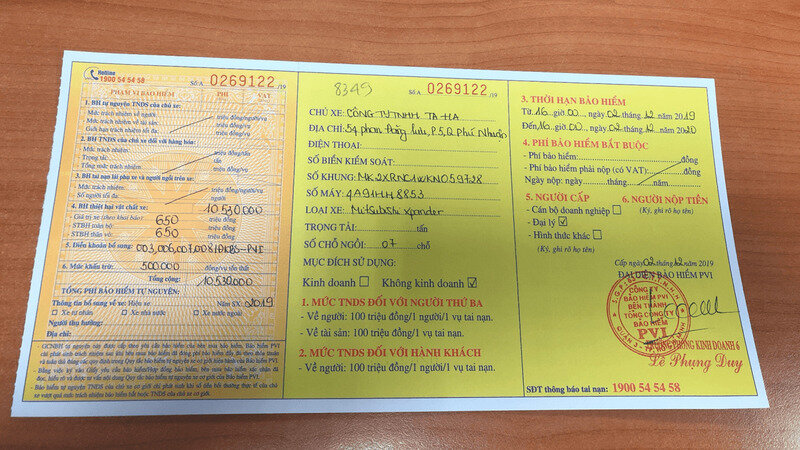 Hotline
1900 54 54 58
Số A 0269122 /19
PHẠM VI BẢO HIỂM PHÍ VAT
1. BH tự nguyện TNDS của chủ xe:
- Mức trách nhiệm về người: triệu đồng/người/vụ
- Mức trách nhiệm về tài sản: triệu đồng/vụ
Giới hạn trách nhiệm tối đa: triệu đồng/vụ
2. BH TNDS của chủ xe đối với hàng hóa:
- Mức trách nhiệm: triệu đồng/tấn
- Trọng tải: tấn
- Tổng mức trách nhiệm: triệu đồng/vụ
3. BH tai nạn lái phụ xe và người ngồi trên xe:
- Mức trách nhiệm: triệu đồng/người/vụ
- Số người tối đa: người
4. BH thiệt hại vật chất xe: 10.530.000
- Giá trị xe (theo khai báo): 650 triệu đồng
- STBH toàn bộ: 650 triệu đồng
- STBH thân vỏ: triệu đồng
5. Điều khoản bổ sung: 003,006,007,008/ĐKBS-PVI
6. Mức khấu trừ: 500.000 đồng/vụ tổn thất
Tổng cộng: 10.530.000
TỔNG PHÍ BẢO HIỂM TỰ NGUYỆN:
Thông tin bổ sung về xe: Hiệu xe: Năm SX: 2019
Xe tư nhân Xe nhà nước Xe nước ngoài
Người thụ hưởng:
Địa chỉ:
8349
Số A 0269122 /19
CHỦ XE: CÔNG TY TNHH TA HA
ĐỊA CHỈ: 54 phan Đăng Lưu, P.5, Q. Phú Nhuận
ĐIỆN THOẠI:
SỐ BIỂN KIỂM SOÁT:
SỐ KHUNG: MK2XRNC1WKN059728
SỐ MÁY: 4A91HH8853
LOẠI XE: Mitsubishi xpander
TRỌNG TẢI: tấn
SỐ CHỖ NGỒI: 07 chỗ
MỤC ĐÍCH SỬ DỤNG:
Kinh doanh Không kinh doanh
1. MỨC TNDS ĐỐI VỚI NGƯỜI THỨ BA
- Về người: 100 triệu đồng/1 người/1 vụ tai nạn.
- Về tài sản: 100 triệu đồng/1 vụ tai nạn.
2. MỨC TNDS ĐỐI VỚI HÀNH KHÁCH
- Về người: 100 triệu đồng/1 người/1 vụ tai nạn.
3. THỜI HẠN BẢO HIỂM
Từ 16 giờ 00, ngày 02 tháng 12 năm 2019
Đến 16 giờ 00, ngày 02 tháng 12 năm 2020
4. PHÍ BẢO HIỂM BẮT BUỘC
- Phí bảo hiểm: đồng
- Phí bảo hiểm phải nộp (có VAT): đồng
Ngày nộp: ngày tháng năm
5. NGƯỜI CẤP 6. NGƯỜI NỘP TIỀN
- Cán bộ doanh nghiệp (Ký, ghi rõ họ tên)
- Đại lý
- Hình thức khác:
(Ký, ghi rõ họ tên)
Cấp ngày 02 tháng 12 năm 2019
ĐẠI DIỆN BẢO HIỂM PVI
CÔNG TY
BẢO HIỂM PVI
BẾN THÀNH
TỔNG CÔNG TY
BẢO HIỂM
PVI
TRƯỞNG PHÒNG KINH DOANH 6
Lê Phụng Duy
SDT thông báo tai nạn: 1900 54 54 58